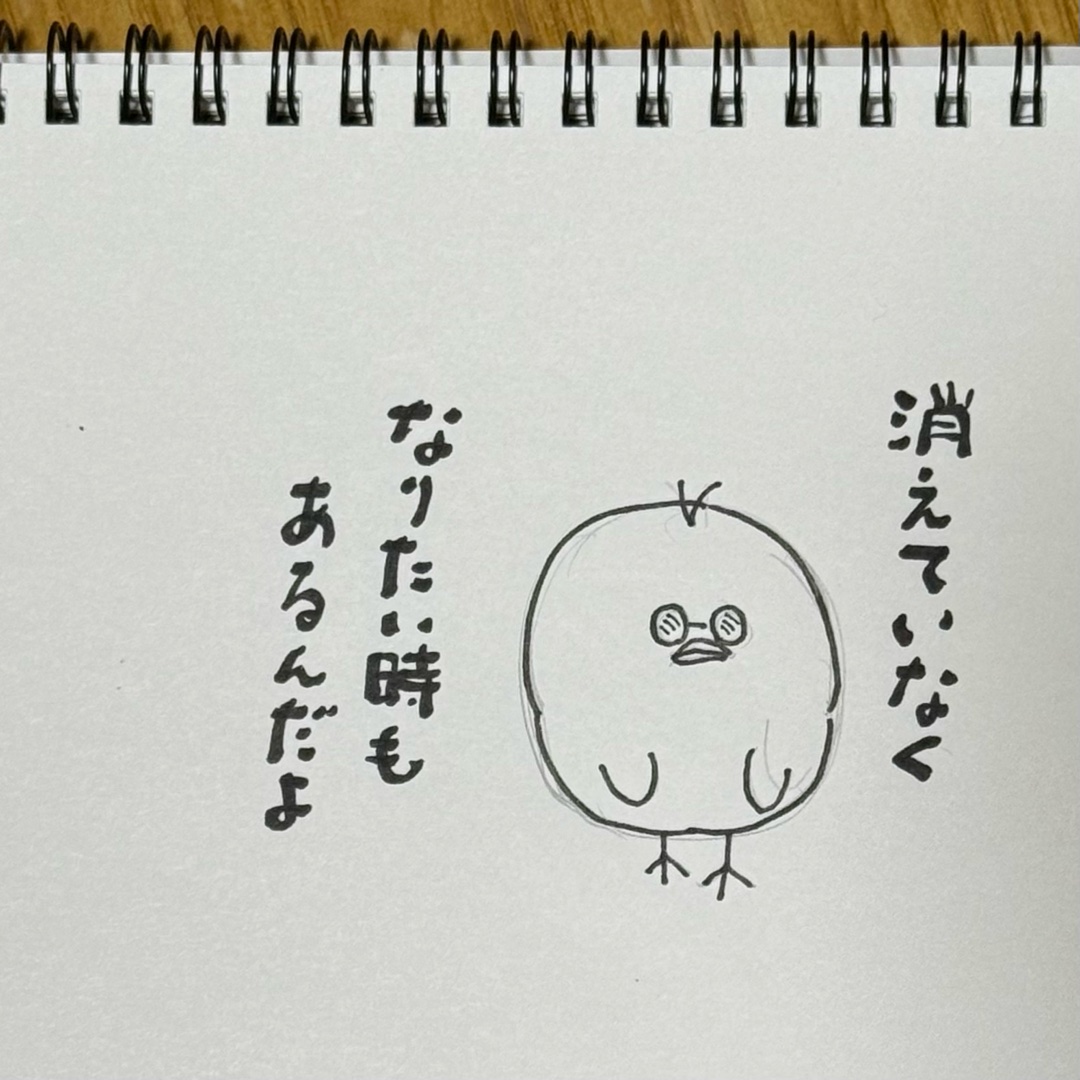 消えていなく
なりたい時も
あるんだよ